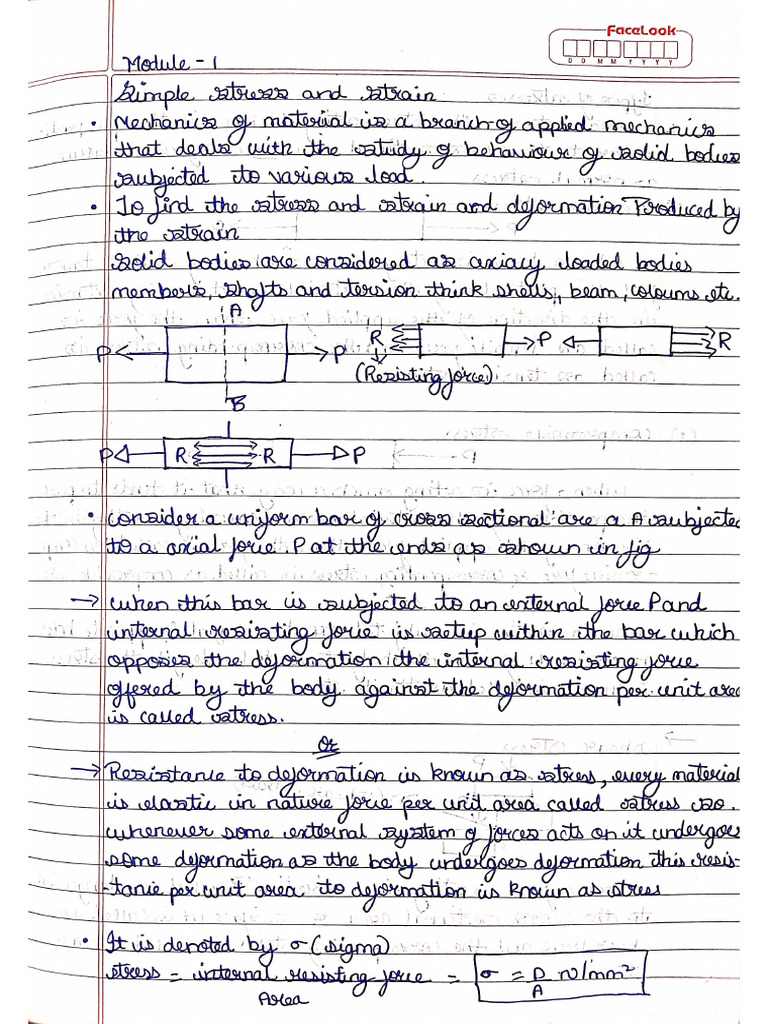 FaceLook
D D M M Y Y Y Y
Module - 1
Simple stress and strain
• Mechanics of material is a branch of applied mechanics
that deals with the study of behaviour of solid bodies
subjected to various load.
• To find the stress and strain and deformation Produced by
the strain
Solid bodies are considered as axiacy loaded bodies
members, shafts and torsion think shells, beam, coloums etc.
A
P P R P R
(Resisting force)
B
P R R P
• consider a uniform bar of cross sectional are a A subjected
to a axial force. P at the ends as shown in fig
→ when this bar is subjected to an external force P and
internal resisting force is setup within the bar which
opposes the deformation the internal resisting force
offered by the body against the deformation per unit area
is called stress.
Or
→ Resistance to deformation is known as stress, every material
is elastic in nature force per unit area called stress so.
whenever some external system of forces acts on it undergoes
some deformation as the body undergoes deformation this resis-
-tance per unit area to deformation is known as stress
• It is denoted by σ (sigma)
stress = internal resisting force = σ = P N/mm²
Area A